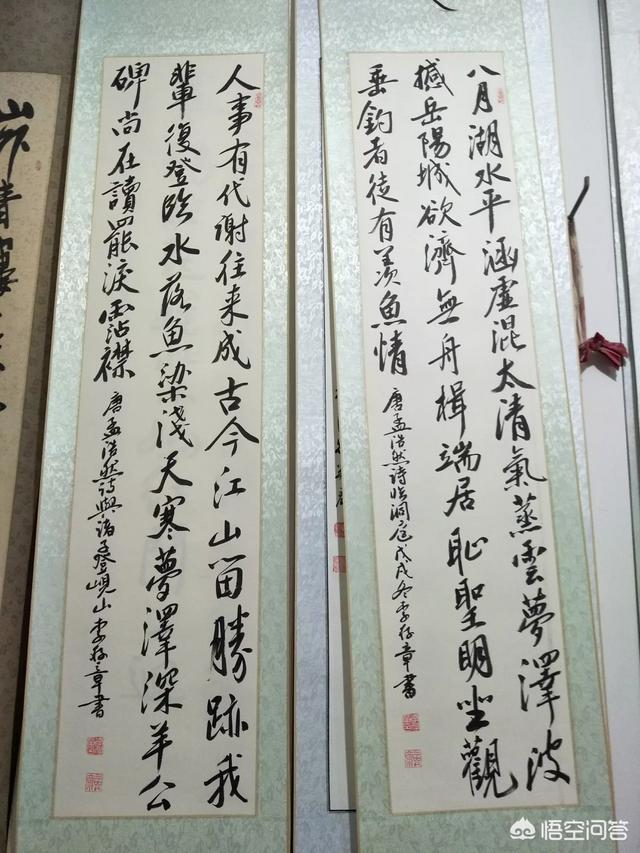 八月湖水平涵虛混太清氣蒸雲夢澤波
撼岳陽城欲濟無舟楫端居恥聖明坐觀
垂釣者徒有羨魚情
唐孟浩然詩臨洞庭戊戌冬李存章書
人事有代謝往来成古今江山留勝跡我
輩復登臨水落魚梁淺天寒夢澤深羊公
碑尚在讀罷淚霑襟
唐孟浩然詩與諸子登峴山李存章書
悟空问答